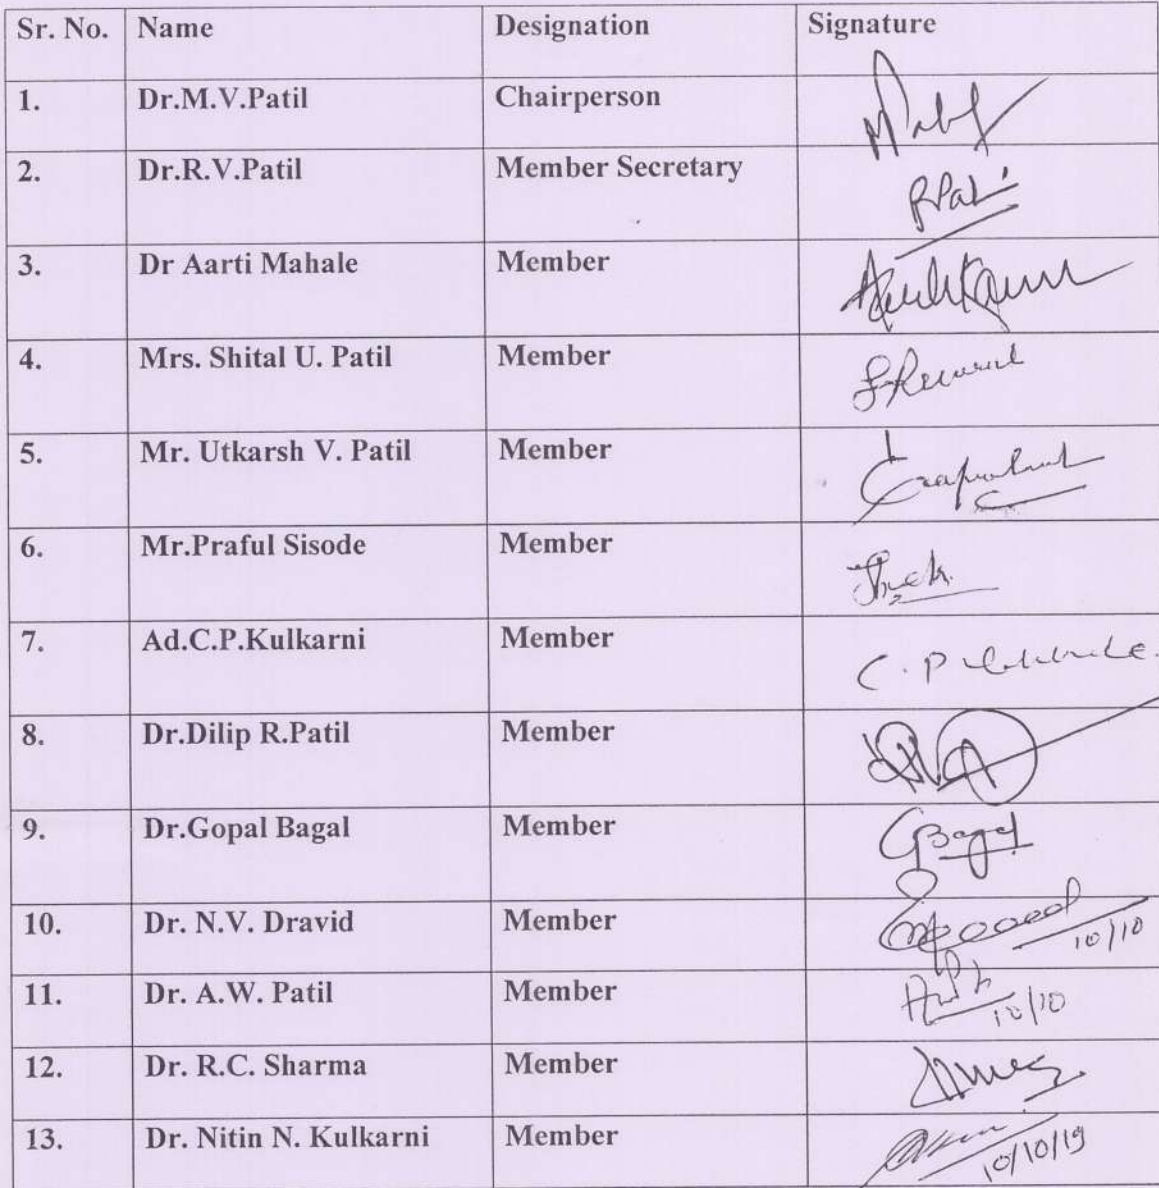 Sr. No. Name Designation Signature
1. Dr.M.V.Patil Chairperson
2. Dr.R.V.Patil Member Secretary
3. Dr Aarti Mahale Member
4. Mrs. Shital U. Patil Member
5. Mr. Utkarsh V. Patil Member
6. Mr.Praful Sisode Member
7. Ad.C.P.Kulkarni Member C.P
8. Dr.Dilip R.Patil Member
9. Dr.Gopal Bagal Member GBagal
10. Dr. N.V. Dravid Member 10/10
11. Dr. A.W. Patil Member 10/10
12. Dr. R.C. Sharma Member
13. Dr. Nitin N. Kulkarni Member 10/10/19